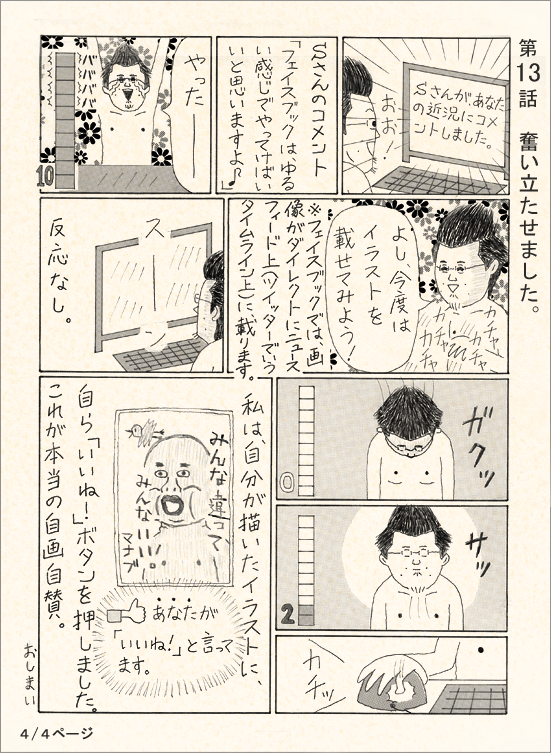 第13話 奮い立たせました。
Sさんが、あなた
の近況にコメ
ントしました。
おお!
Sさんのコメント
「フェイスブックはゆる
い感じでやってけばい
いと思いますよ♪」
やった
バババババ
10
よし、今度は
イラストを
載せてみよう!
カチャ
カチャ
カチャ
※フェイスブックでは、画
像がダイレクトにニュース
フィード上(ツイッターでいう
タイムライン上)に、載ります。
スーン
反応なし。
ガクッ
0
サッ
2
カチッ
私は、自分が描いたイラストに、
みんな違って
みんないい。
マナブ
あなたが
「いいね!」と言って
ます。
自ら「いいね!」ボタンを押しました。
これが本当の自画自賛。
おしまい
4/4ページ